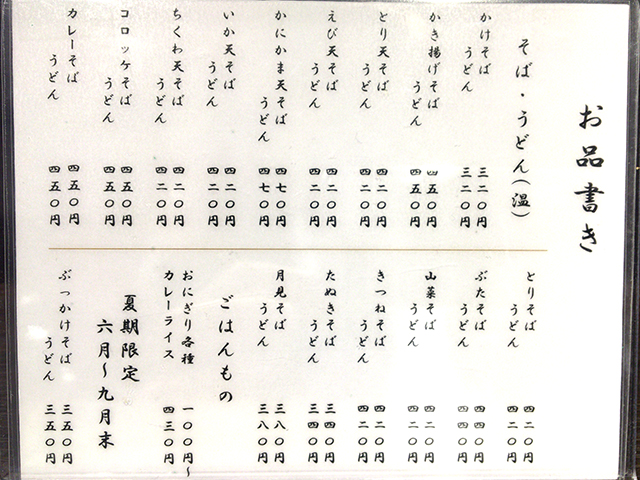 お品書き
そば・うどん(温)
かけそば 三二〇円
うどん 三二〇円
かき揚げそば 四五〇円
うどん 四五〇円
とり天そば 四二〇円
うどん 四二〇円
えび天そば 四二〇円
うどん 四二〇円
かにかま天そば 四七〇円
うどん 四七〇円
いか天そば 四二〇円
うどん 四二〇円
ちくわ天そば 四二〇円
うどん 四二〇円
コロッケそば 四五〇円
うどん 四五〇円
カレーそば 四五〇円
うどん 四五〇円
とりそば 四二〇円
うどん 四二〇円
ぶたそば 四四〇円
うどん 四四〇円
山菜そば 四二〇円
うどん 四二〇円
きつねそば 四二〇円
うどん 四二〇円
たぬきそば 三四〇円
うどん 三四〇円
月見そば 三八〇円
うどん 三八〇円
ごはんもの
おにぎり各種 一〇〇円〜
カレーライス 四三〇円
夏期限定
六月〜九月末
ぶっかけそば 三五〇円
うどん 三五〇円